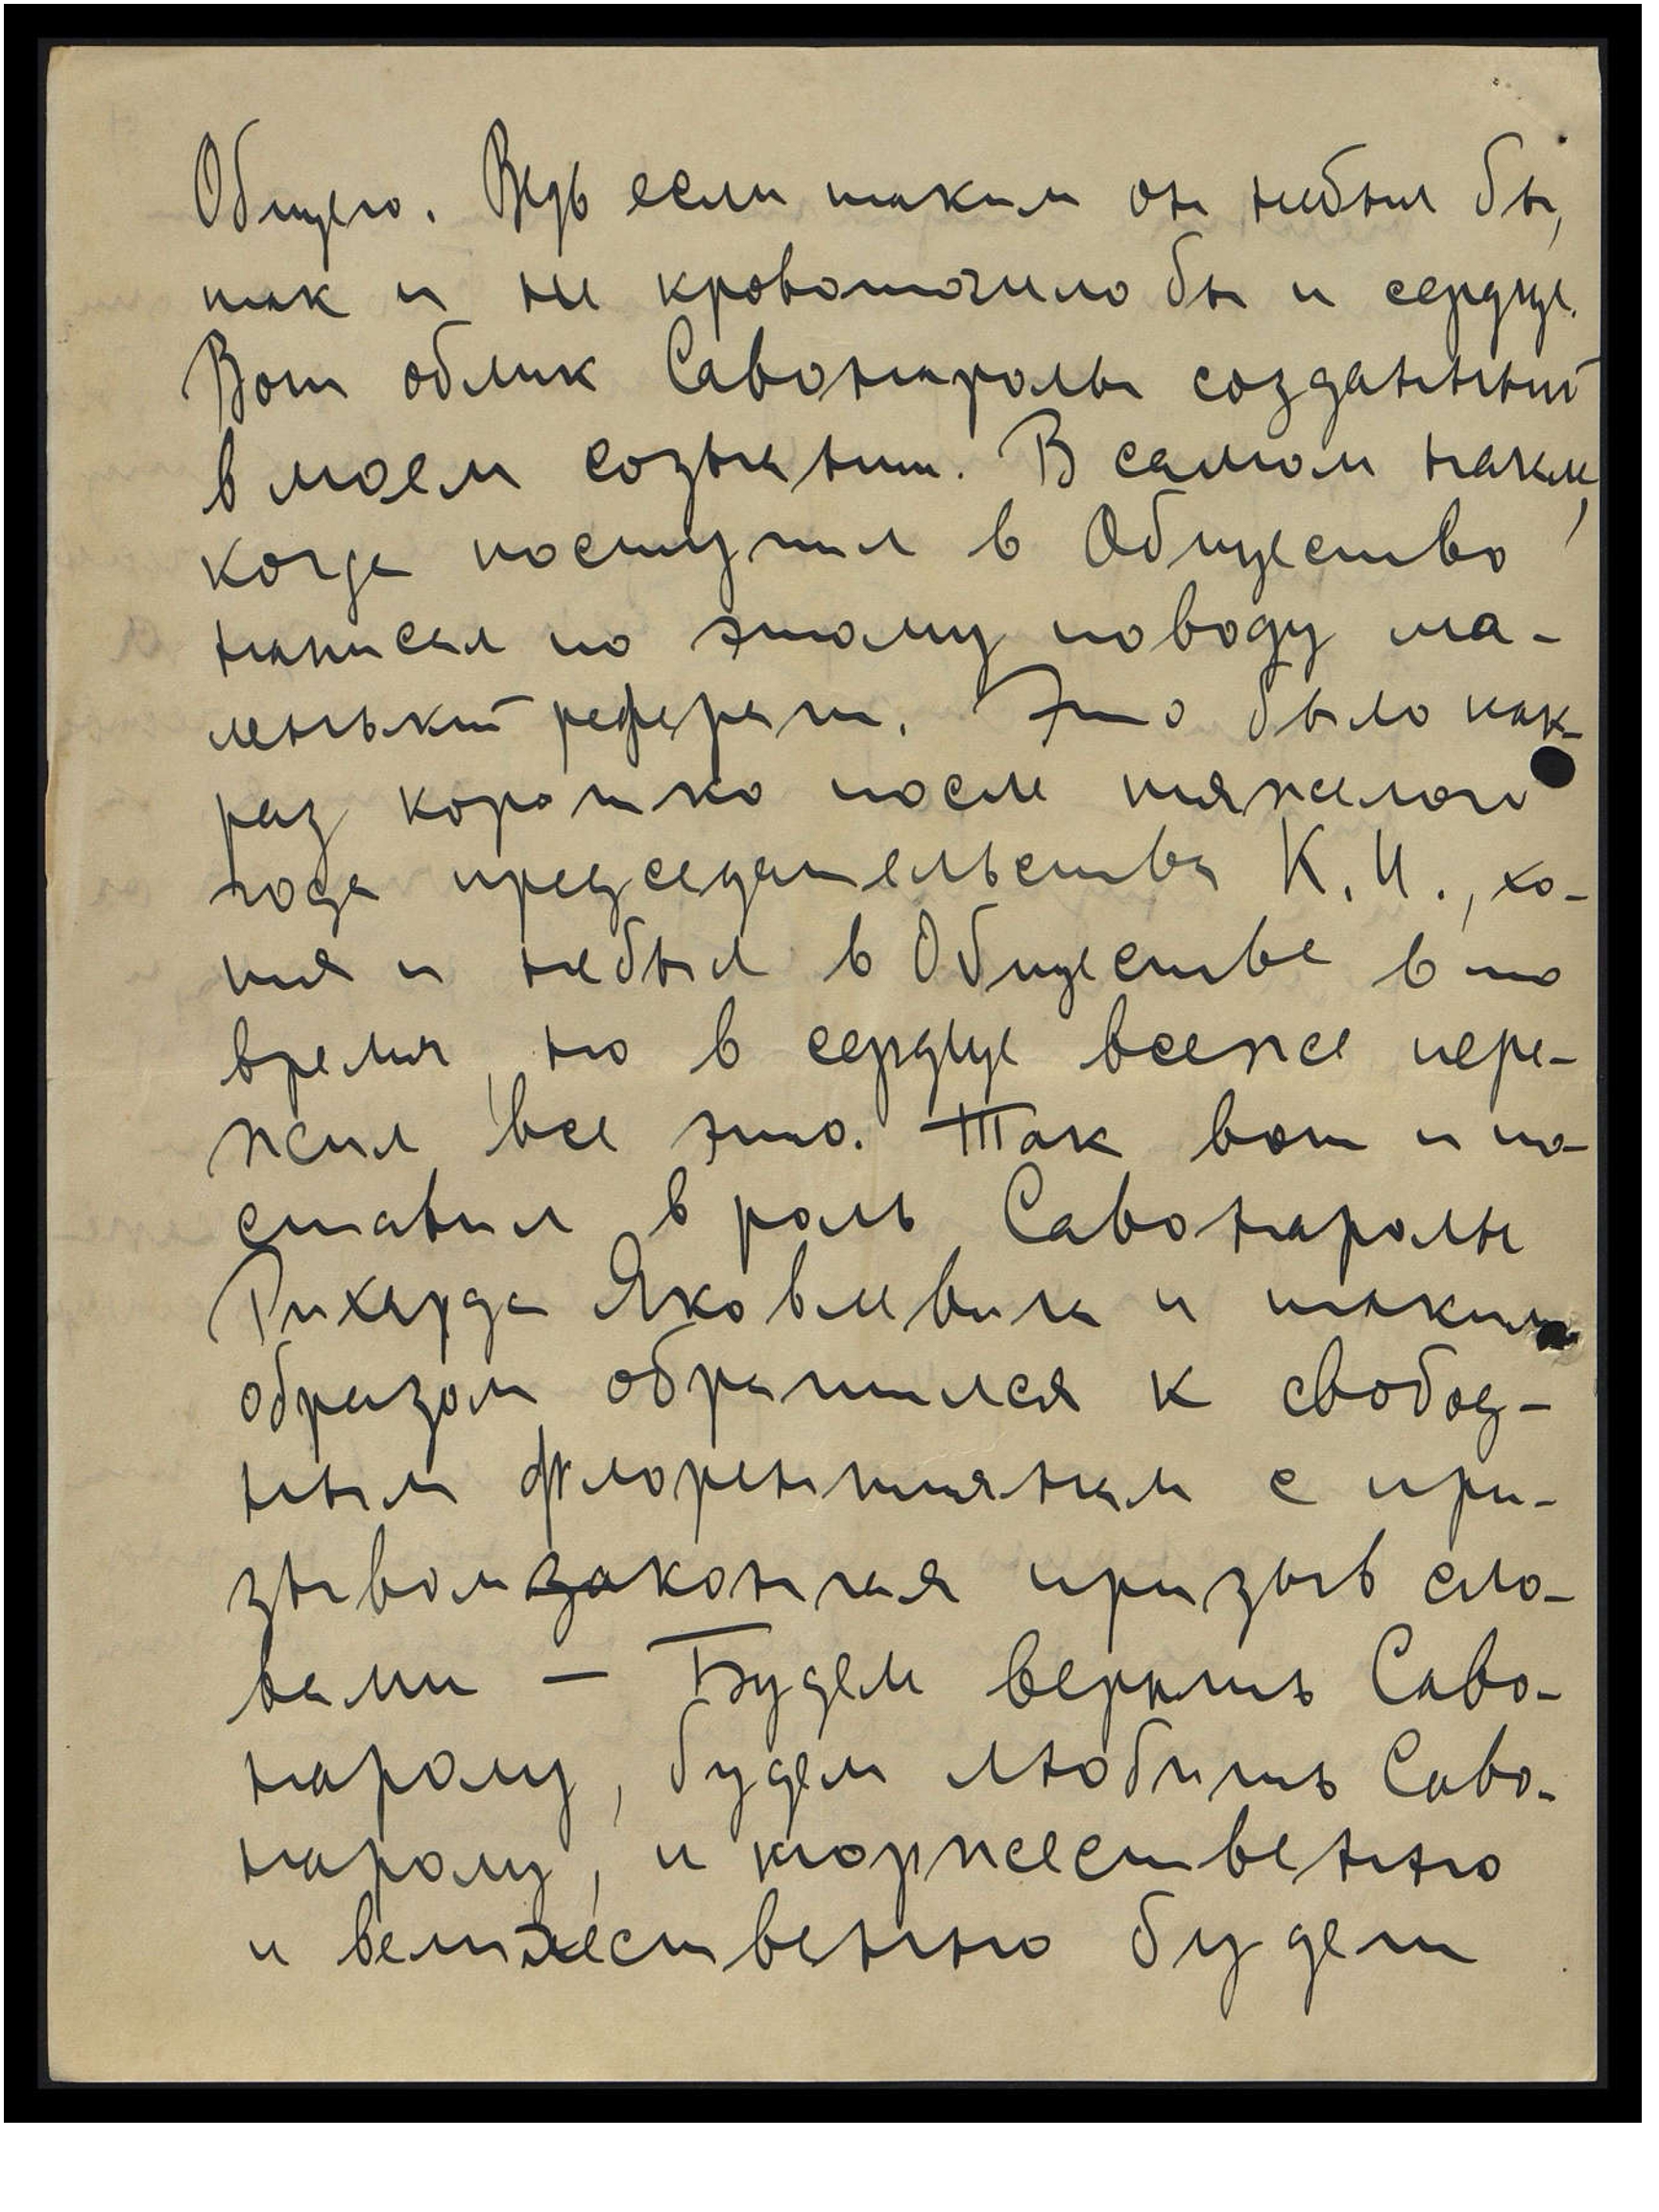 Общего. Ведь если таким он небыл бы,
так и не кровоточило бы и сердце.
Вот облик Савонаролы созданный
в моем сознании. В самом начале,
когда поступил в Общество
написал по этому поводу ма-
ленький реферат. Это было как-
раз коротко после тяжелого
года председательства К.И., хо-
тя и небыл в Обществе в то
время, но в сердце всеже пере-
жил все это. Так вот и по-
ставил в роль Савонаролы
Рихарда Яковлевича и таким
образом обратился к свобод-
ным флорентиянам с при-
зывом закончая призыв сло-
вами — Будем верить Саво-
наролу, будем любить Саво-
наролу, и торжественно
и величественно будет